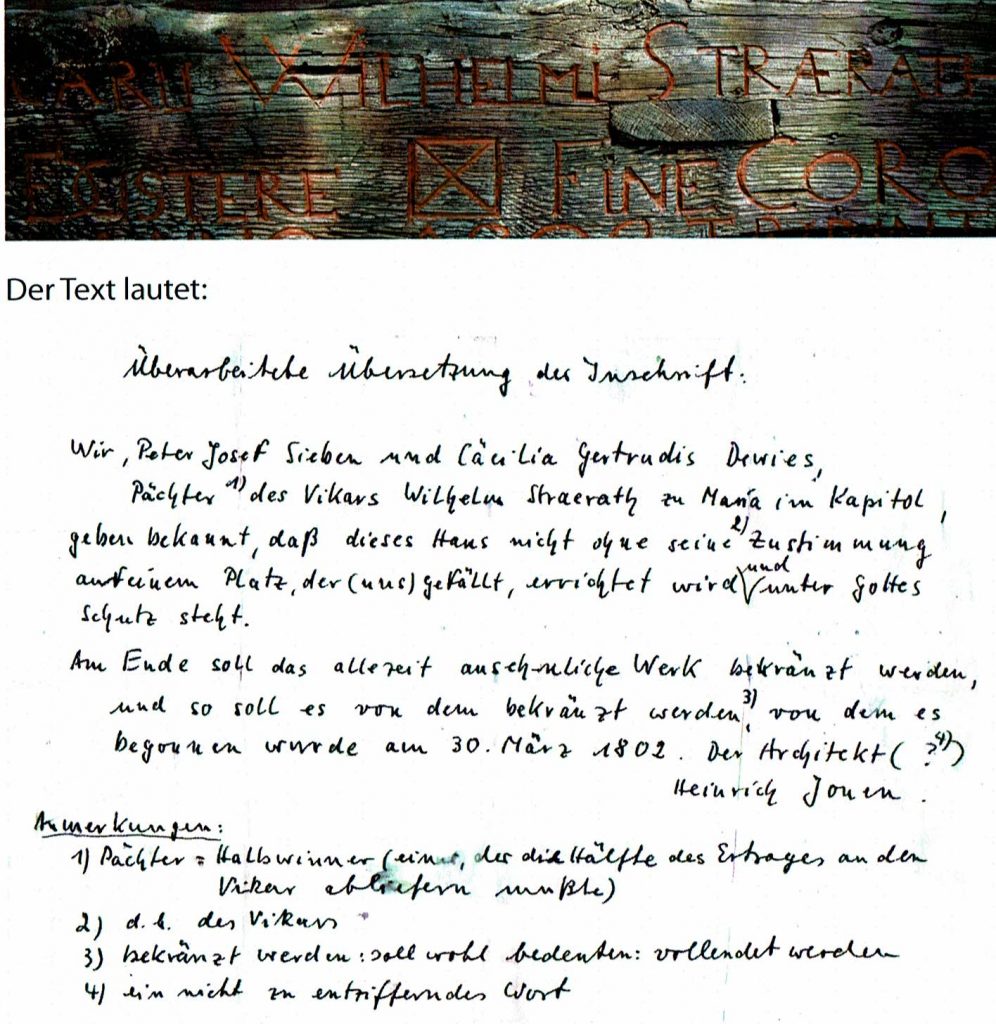 CARII WILHELMI STRÆRATH
EGISTERE FINE CORO
Der Text lautet:
Überarbeitete Übersetzung der Inschrift:
Wir, Peter Josef Sieben und Cäcilia Gertrudis Dewies,
Pächter 1) des Vikars Wilhelm Straerath zu Maria im Kapitol,
geben bekannt, daß dieses Haus nicht ohne seine 2) Zustimmung
auf einem Platz, der (uns) gefällt, errichtet wird und unter Gottes
Schutz steht.
Am Ende soll das allezeit ansehnliche Werk bekränzt werden,
und so soll es von dem bekränzt werden 3), von dem es
begonnen wurde am 30. März 1802. Der Architekt ( ? 4))
Heinrich Jouen.
Anmerkungen:
1) Pächter = Halbwinner (einer, der die Hälfte des Ertrages an den
Vikar abliefern mußte)
2) d.h. des Vikars
3) bekränzt werden: soll wohl bedeuten: vollendet werden
4) ein nicht zu entzifferndes Wort